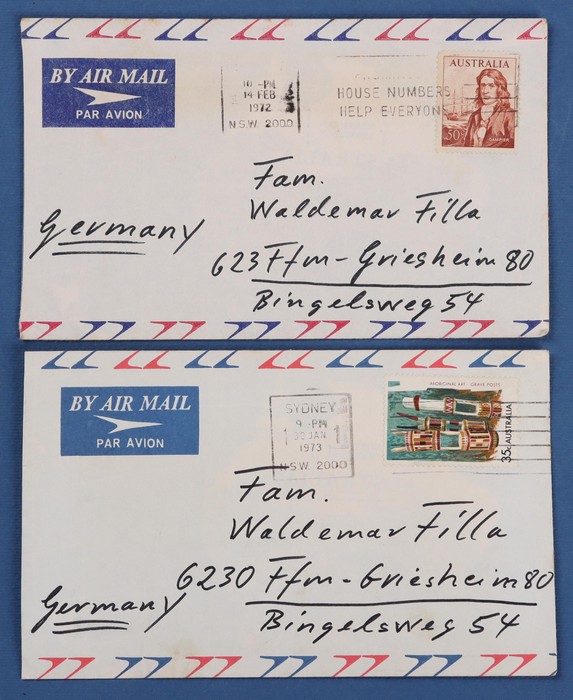 BY AIR MAIL
PAR AVION
10 -PM
14 FEB
1972
N.S.W. 2000
HOUSE NUMBERS
HELP EVERYONE
AUSTRALIA
50c
Fam.
Waldemar Filla
Germany
623 Ffm-Griesheim 80
Bingelsweg 54
BY AIR MAIL
PAR AVION
SYDNEY
9 -PM
1 30 JAN 1
1973
N.S.W. 2000
ABORIGINAL ART - GRAVE POSTS
35c AUSTRALIA
Fam.
Waldemar Filla
6230 Ffm-Griesheim 80
Germany
Bingelsweg 54